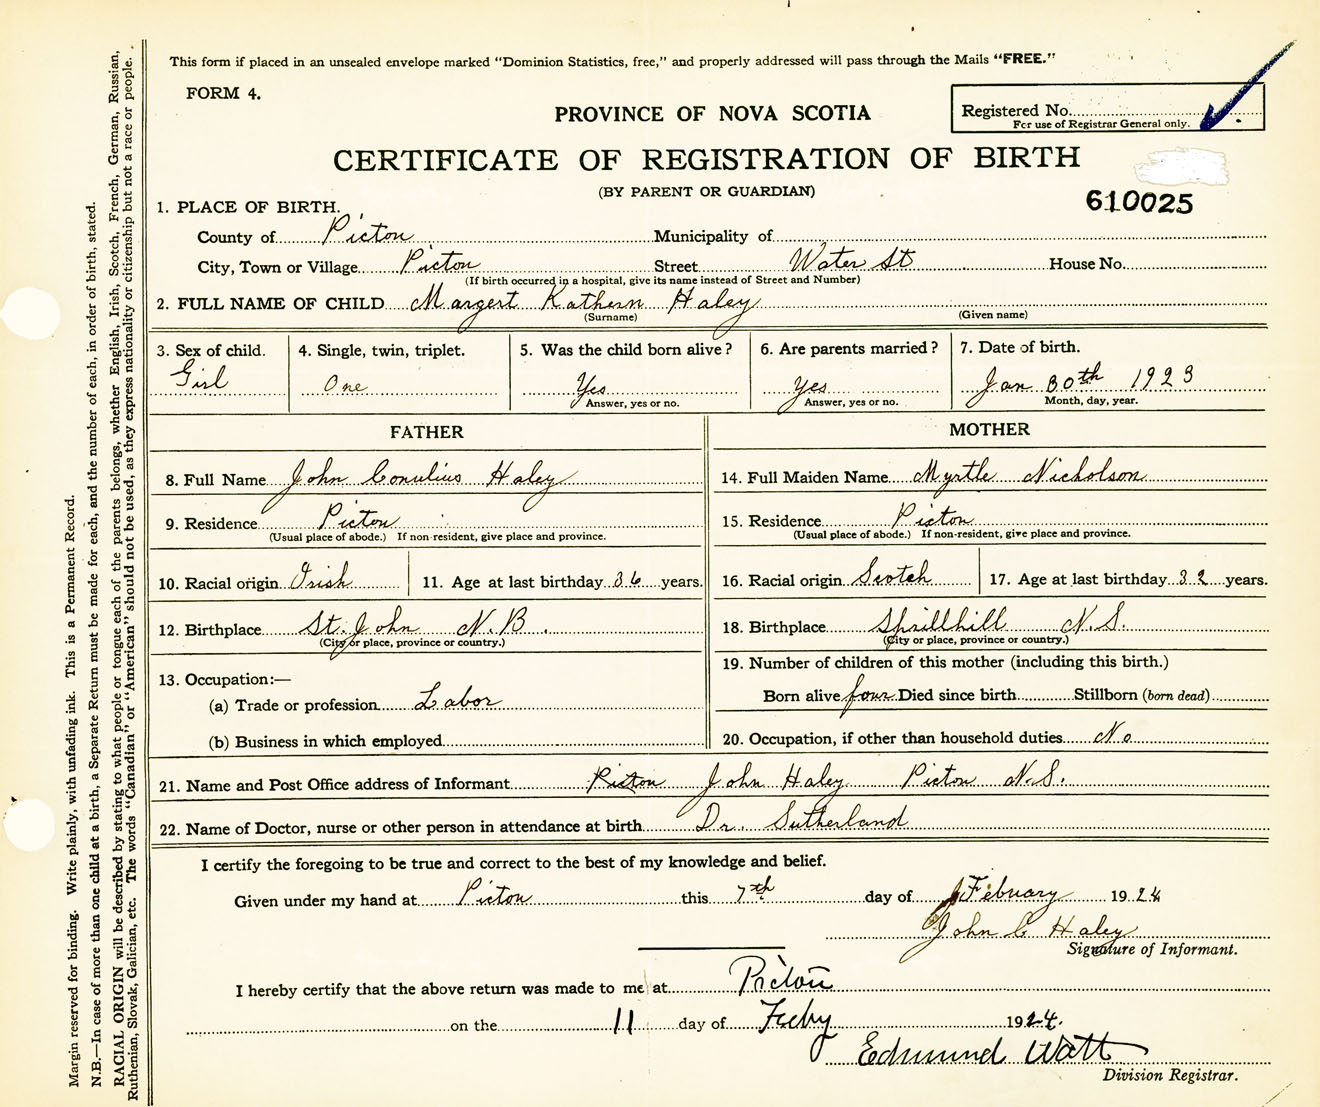 This form if placed in an unsealed envelope marked "Dominion Statistics, free," and properly addressed will pass through the Mails "FREE."
FORM 4.
PROVINCE OF NOVA SCOTIA
Registered No.
For use of Registrar General only.
CERTIFICATE OF REGISTRATION OF BIRTH
(BY PARENT OR GUARDIAN)
610025
1. PLACE OF BIRTH.
County of Picton Municipality of
City, Town or Village Picton Street Water St House No.
(If birth occurred in a hospital, give its name instead of Street and Number)
2. FULL NAME OF CHILD Margert Kathern Haley
(Surname) (Given name)
3. Sex of child. 4. Single, twin, triplet. 5. Was the child born alive? 6. Are parents married? 7. Date of birth.
Girl One Yes Yes Jan 30th 1923
Answer, yes or no. Answer, yes or no. Month, day, year.
FATHER MOTHER
8. Full Name John Conulius Haley 14. Full Maiden Name Myrtle Nicholson
9. Residence Picton 15. Residence Picton
(Usual place of abode.) If non-resident, give place and province. (Usual place of abode.) If non-resident, give place and province.
10. Racial origin Irish 11. Age at last birthday 36 years. 16. Racial origin Scotch 17. Age at last birthday 32 years.
12. Birthplace St. John N.B. 18. Birthplace Sprillhill N.S.
(City or place, province or country.) (City or place, province or country.)
13. Occupation:— 19. Number of children of this mother (including this birth.)
(a) Trade or profession Labor Born alive four Died since birth Stillborn (born dead)
(b) Business in which employed 20. Occupation, if other than household duties No
21. Name and Post Office address of Informant Picton John Haley Picton N.S.
22. Name of Doctor, nurse or other person in attendance at birth Dr. Sutherland
I certify the foregoing to be true and correct to the best of my knowledge and belief.
Given under my hand at Picton this 7th day of February 1924
John C Haley
Signature of Informant.
I hereby certify that the above return was made to me at Pictou
on the 11 day of Feby 1924.
Edmund Watt
Division Registrar.
Margin reserved for binding. Write plainly, with unfading ink. This is a Permanent Record.
N.B.—In case of more than one child at a birth, a Separate Return must be made for each, and the number of each, in order of birth, stated.
RACIAL ORIGIN will be described by stating to what people or tongue each of the parents belongs, whether English, Irish, Scotch, French, German, Russian,
Ruthenian, Slovak, Galician, etc. The words "Canadian" or "American" should not be used, as they express nationality or citizenship but not a race or people.